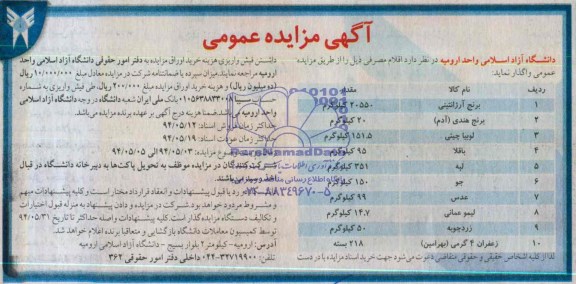 آگهی مزایده عمومی
دانشگاه آزاد اسلامی واحد ارومیه در نظر دارد اقلام مصرفی ذیل را از طریق مزایده
عمومی واگذار نماید:
ردیف نام کالا مقدار
۱ برنج آرژانتینی ۲۰۵۵۰ کیلوگرم
۲ برنج هندی (آدم) ۲۰ کیلوگرم
۳ لوبیا چیتی ۱۵۱.۵ کیلوگرم
۴ باقلا ۹۵ کیلوگرم
۵ لپه ۳۵۱ کیلوگرم
۶ جو ۱۵۰ کیلوگرم
۷ عدس ۹۹ کیلوگرم
۸ لیمو عمانی ۱۴.۷ کیلوگرم
۹ زردچوبه ۵۰ کیلوگرم
۱۰ زعفران ۴ گرمی (بهرامین) ۲۱۸ بسته
لذا از کلیه اشخاص حقیقی و حقوقی متقاضی دعوت می‌شود جهت خرید اسناد مزایده با در دست
داشتن فیش واریزی هزینه خرید اوراق مزایده به دفتر امور حقوقی دانشگاه آزاد اسلامی واحد
ارومیه مراجعه نمایند. میزان سپرده یا ضمانتنامه شرکت در مزایده معادل مبلغ ۱۰/۰۰۰/۰۰۰ ریال
(ده میلیون ریال) و هزینه خرید اوراق مزایده مبلغ ۲۰۰/۰۰۰ ریال، طی فیش واریزی به شماره
حساب سیبا ۰۱۰۵۶۳۸۸۳۳۰۰۸ بانک ملی ایران شعبه دانشگاه در وجه دانشگاه آزاد اسلامی
واحد ارومیه می‌باشد. ضمنا هزینه درج آگهی بر عهده برنده مزایده می‌باشد.
حداکثر زمان فروش اسناد: ۹۴/۰۵/۱۲
حداکثر زمان عودت اسناد: ۹۴/۰۵/۱۹
مزایده: ۹۴/۰۵/۰۳ الی ۹۴/۰۵/۰۵
شرکت‌کنندگان در مزایده موظف به تحویل پاکت‌ها به دبیرخانه دانشگاه در قبال
اخذ رسید می‌باشند.
رد یا قبول پیشنهادات و انعقاد قرارداد مختار است و کلیه پیشنهادات مبهم
و مشروط مردود خواهد بود. شرکت در مزایده و دادن پیشنهاد به منزله قبول اختیارات
و تکالیف دستگاه مزایده‌گذار است. کلیه پیشنهادات واصله حداکثر تا تاریخ ۹۴/۰۵/۳۱
توسط کمیسیون معاملات دانشگاه بازگشایی و متعاقبا برنده اعلام خواهد شد.
آدرس: ارومیه- کیلومتر ۲ بلوار بسیج - دانشگاه آزاد اسلامی ارومیه
تلفن: ۳۲۷۱۹۹۰۰-۰۴۴ داخلی دفتر امور حقوقی ۳۶۲
ParsNamadData
۰۲۱-۸۸۳۴۹۶۷۰-۵